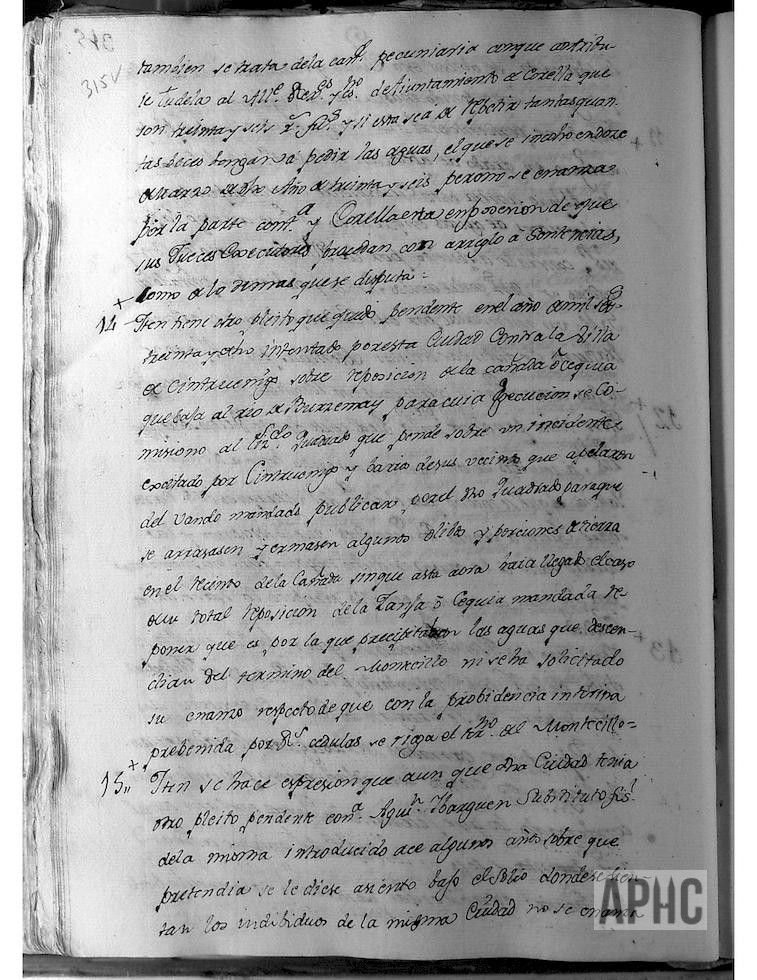 315V
tambien se trata dela cant.d pecuniaria conque contribu-
ie Tudela al de Aiuntamiento de Corella que
son treinta y seis y si esta se á de repetir tantas quan-
tas veces bengan á pedir las aguas, el que se
Año de treinta y seis pero no se enanza
por la parte cont.a y Corella esta en posesion de que
sus Jueces Executores procedan con arreglo á Sentencias,
como de lo demas que se disputa =
14 + Iten tiene otro pleito que quedó pendente en el año de mil set.s
treinta y ocho intentado por esta Ciudad Contra la Villa
de Cintruenigo sobre reposicion de la cañada ō cequia
que baja al rio de para cuia execucion se Co-
misiono al Quadrado que pende sobre un incidente
excitado por Cintruenigo y barios de sus vecinos que apelaron
del vando mandado publicar por el dho Quadrado para que
se arrasasen y ermasen algunos olibos y porciones de tierra
en el recinto dela Cañada sin que asta aora haia llegado el caso
de su total reposición dela Zanja ō Cequia mandada re-
poner que es por la que precipitaban las aguas que descen-
dian del termino del Montecillo ni se ha solicitado
su enanzo respecto de que con la probidencia interina
prebenida por R.s cedulas se riega el ter.no del Montecillo =
15 + Iten se hace espresion que aun que dha Ciudad tenia
otro pleito pendente con.a Aqui.n Ibarguen Substituto fis.l
dela misma introducido ace algunos años sobre que
pretendia se le diese asiento bajo el Solio donde se sien-
tan los individuos de la misma Ciudad no se enanta
APHC